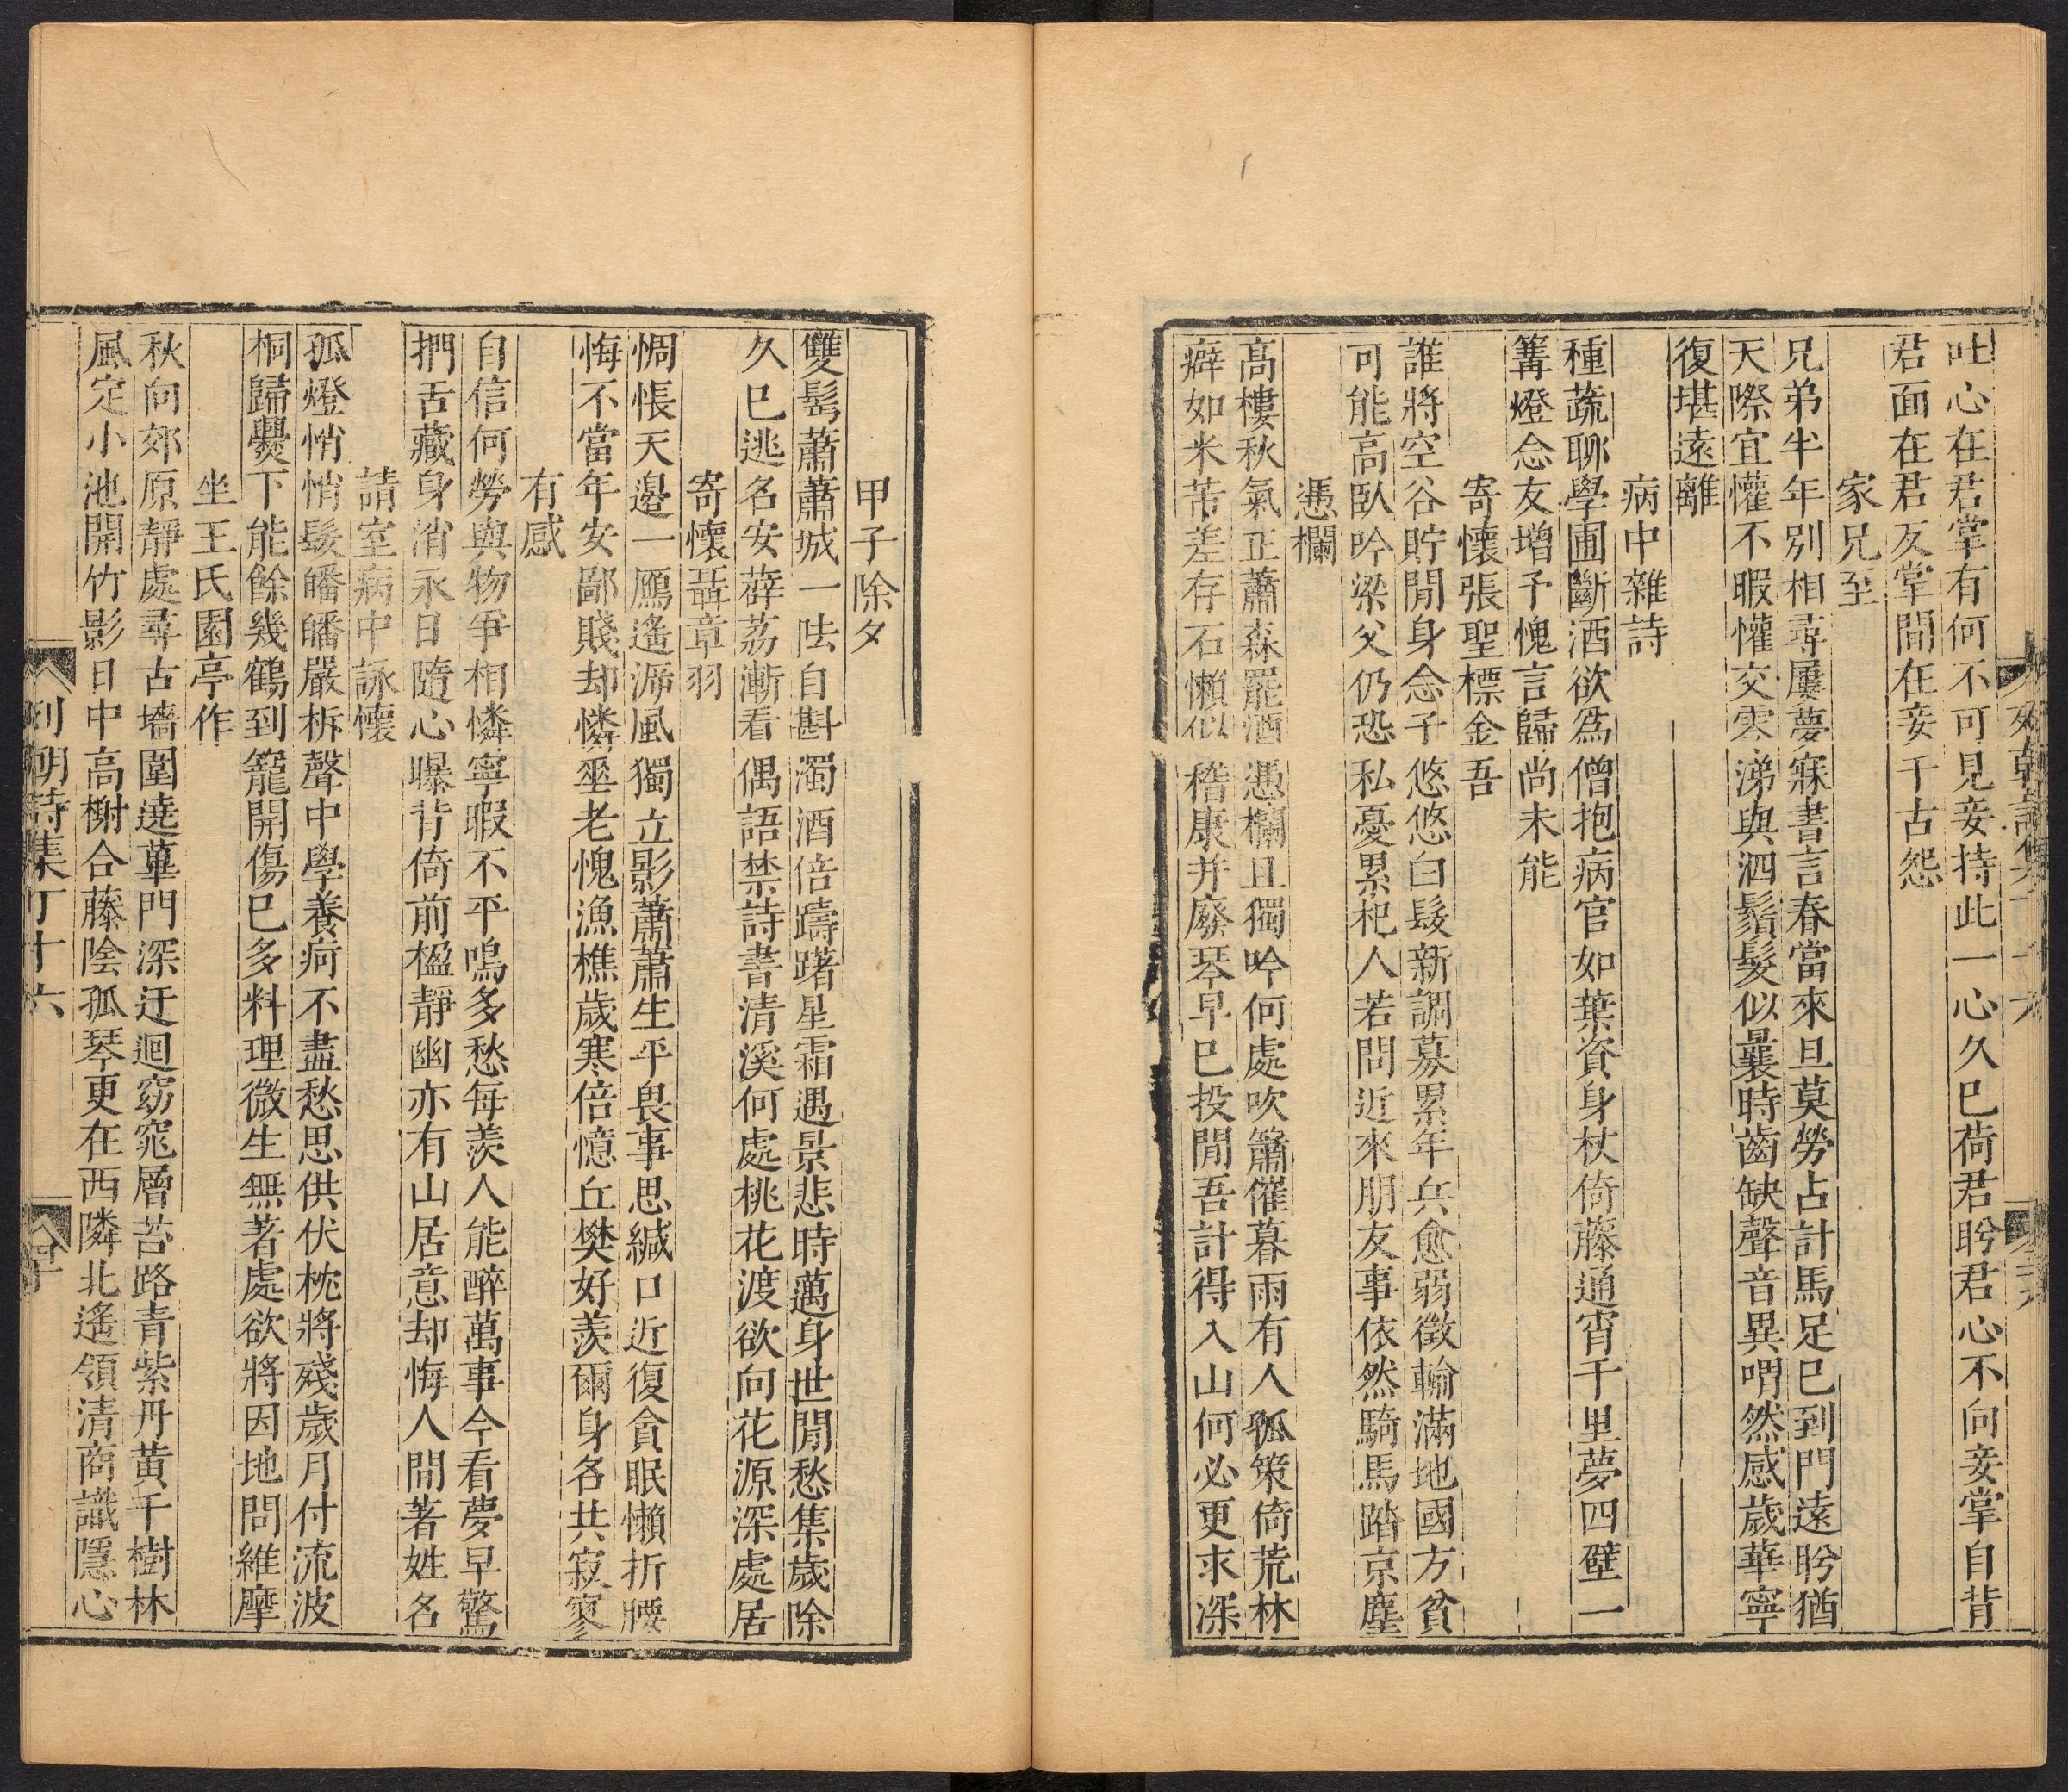 吐心在君掌有何不可見妾持此一心久巳荷君盻君心不向妾掌自背
君面在君反掌間在妾千古怨
家兄至
兄弟半年別相尋屢夢寐書言春當來旦莫勞占計馬足巳到門遠盻猶
天際宜懽不暇懽交零涕與泗鬚髮似曩時齒缺聲音異喟然感歲華寧
復堪遠離
病中雜詩
種蔬聊學圃斷酒欲爲僧抱病官如葉資身杖倚藤通宵千里夢四壁一
篝燈念友增予愧言歸尚未能
寄懷張聖標金吾
誰將空谷貯閒身念子悠悠白髮新調募累年兵愈弱徵輸滿地國方貧
可能高臥吟梁父仍恐私憂累杞人若問近來朋友事依然騎馬踏京塵
憑欄
高樓秋氣正蕭森罷酒憑欄且獨吟何處吹簫催暮雨有人孤策倚荒林
癖如米芾差存石懶似稽康并廢琴早巳投閒吾計得入山何必更求深
甲子除夕
雙髩蕭蕭城一呿自斟濁酒倍躊躇星霜遇景悲時邁身世閒愁集歲除
久巳逃名安薜荔漸看偶語禁詩書清溪何處桃花渡欲向花源深處居
寄懷聶章羽
惆悵天邊一鴈遙㴑風獨立影蕭蕭生平畏事思緘口近復貪眠懶折腰
悔不當年安鄙賤却憐垩老愧漁樵歲寒倍憶丘樊好羨爾身名共寂寥
有感
自信何勞與物爭相憐寧暇不平鳴多愁每羨人能醉萬事今看夢早驚
捫舌藏身消永日隨心曝背倚前楹靜幽亦有山居意却悔人間著姓名
請室病中詠懷
孤燈悄悄髮皤皤嚴柝聲中學養疴不盡愁思供伏枕將殘歲月付流波
桐歸爨下能餘幾鶴到籠開傷巳多料理微生無著處欲將因地問維摩
坐王氏園亭作
秋向郊原靜處尋古墻圍遶蓽門深迂迴窈窕層苔路青紫丹黃千樹林
風定小池開竹影日中高榭合藤陰孤琴更在西隣北遙領清商識隱心
列朝詩集丁十六